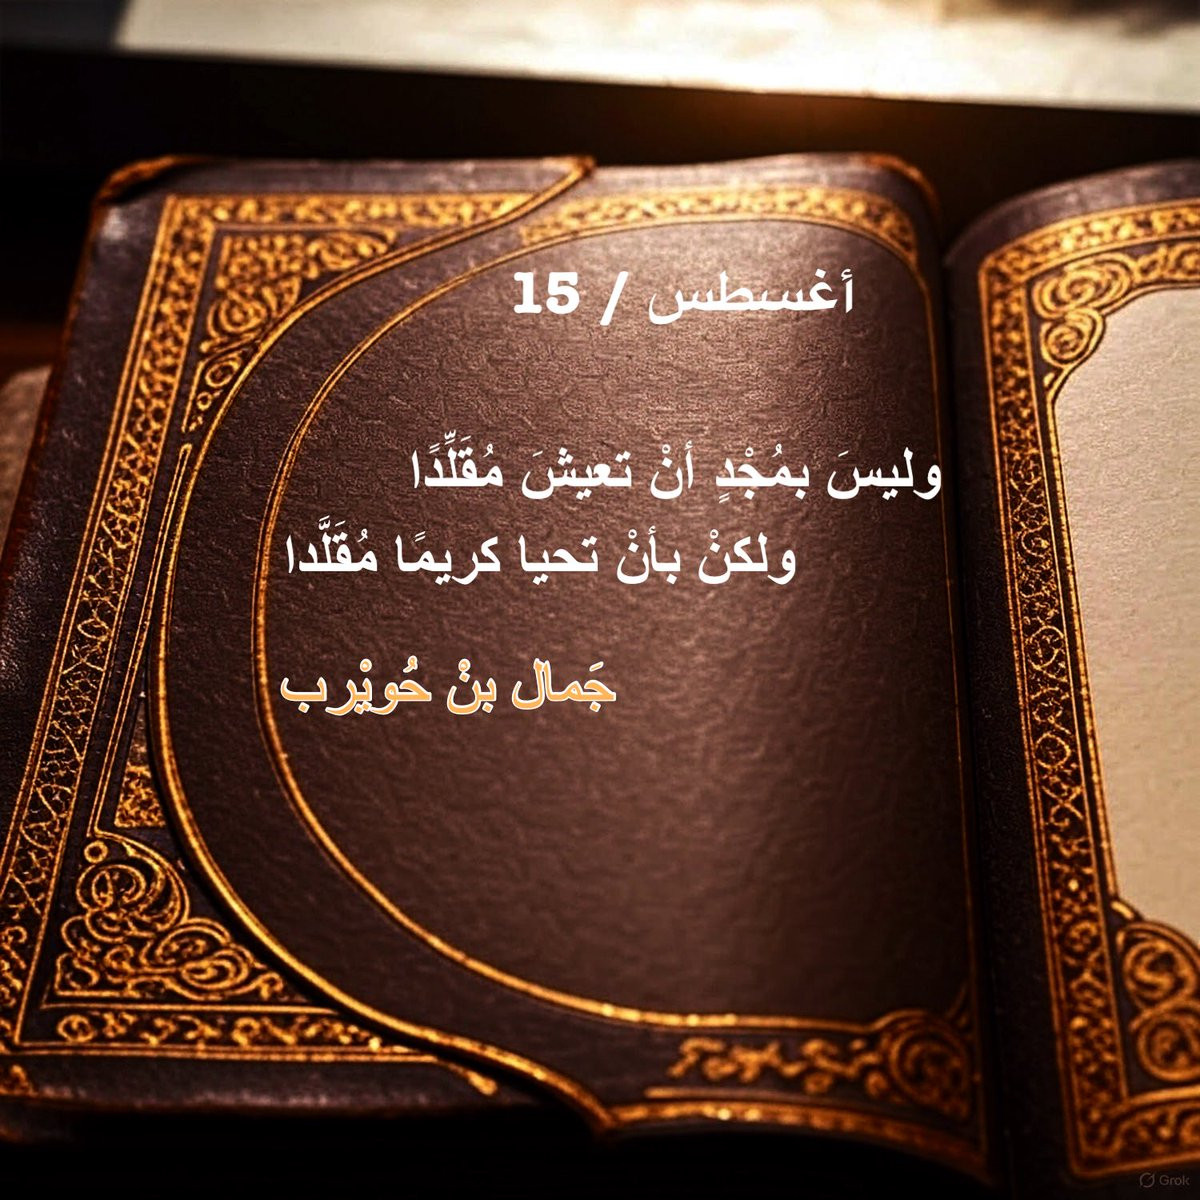 أغسطس / 15
وليسَ بمُجْدٍ أنْ تعيشَ مُقَلِّدًا
ولكنْ بأنْ تحيا كريمًا مُقَلَّدا
جَمال بنْ حُويْرب
Grok